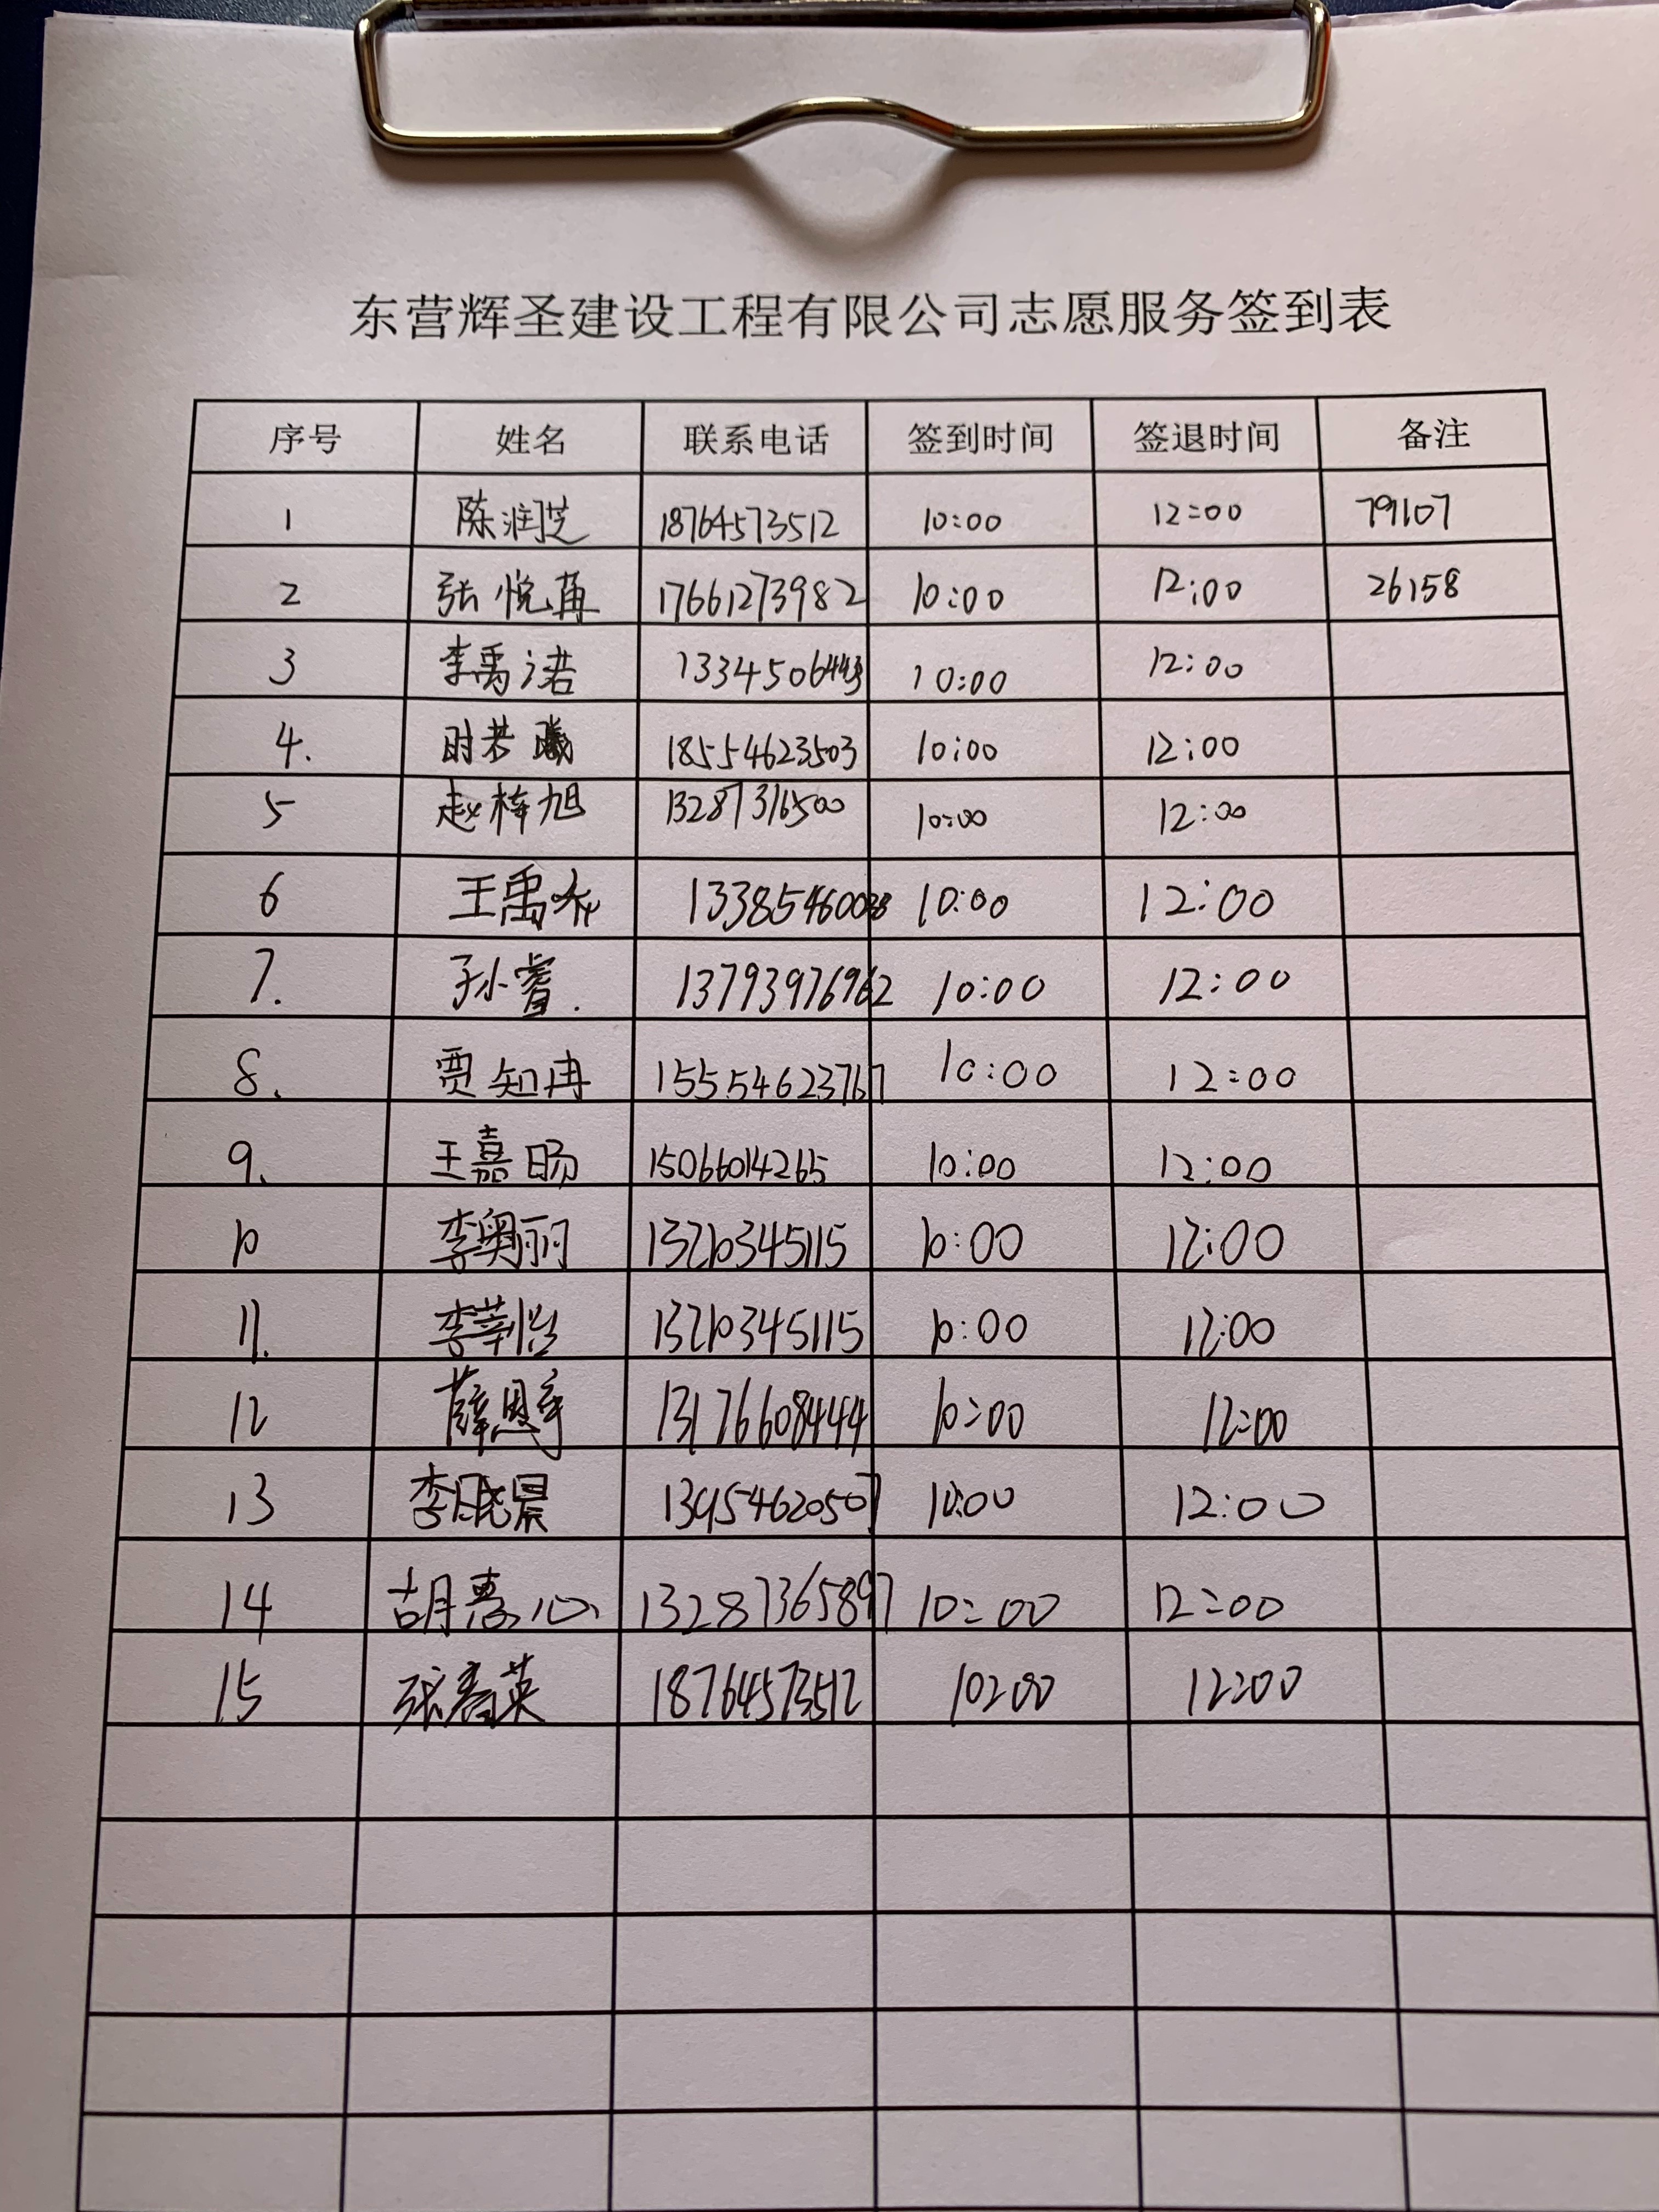 东营辉圣建设工程有限公司志愿服务签到表
序号 姓名 联系电话 签到时间 签退时间 备注
1 陈润芝 18764573512 10:00 12:00 79107
2 张悦苒 17661273982 10:00 12:00 26158
3 李禹诺 13345064443 10:00 12:00
4. 时若曦 18554623503 10:00 12:00
5 赵梓旭 13287316500 10:00 12:00
6 王禹乔 13385460038 10:00 12:00
7. 孙睿. 13793976962 10:00 12:00
8. 贾知冉 15554623767 10:00 12:00
9. 王嘉旸 15066014265 10:00 12:00
10 李奥丽 13210345115 10:00 12:00
11. 李莘怡 13210345115 10:00 12:00
12 薛恩宇 13176608444 10:00 12:00
13 李晓晨 13954620507 10:00 12:00
14 胡惠心 13287365897 10:00 12:00
15 张春英 18764573512 10:00 12:00